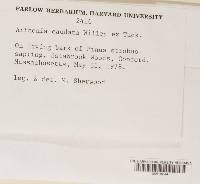 FARLOW HERBARIUM, HARVARD UNIVERSITY
2410
Arthonia caudata Willey ex Tuck.
On living bark of Pinus strobus
sapling, Estabrook Woods, Concord,
Massachusetts, May 21, 1978.
Leg. & det. M. Sherwood